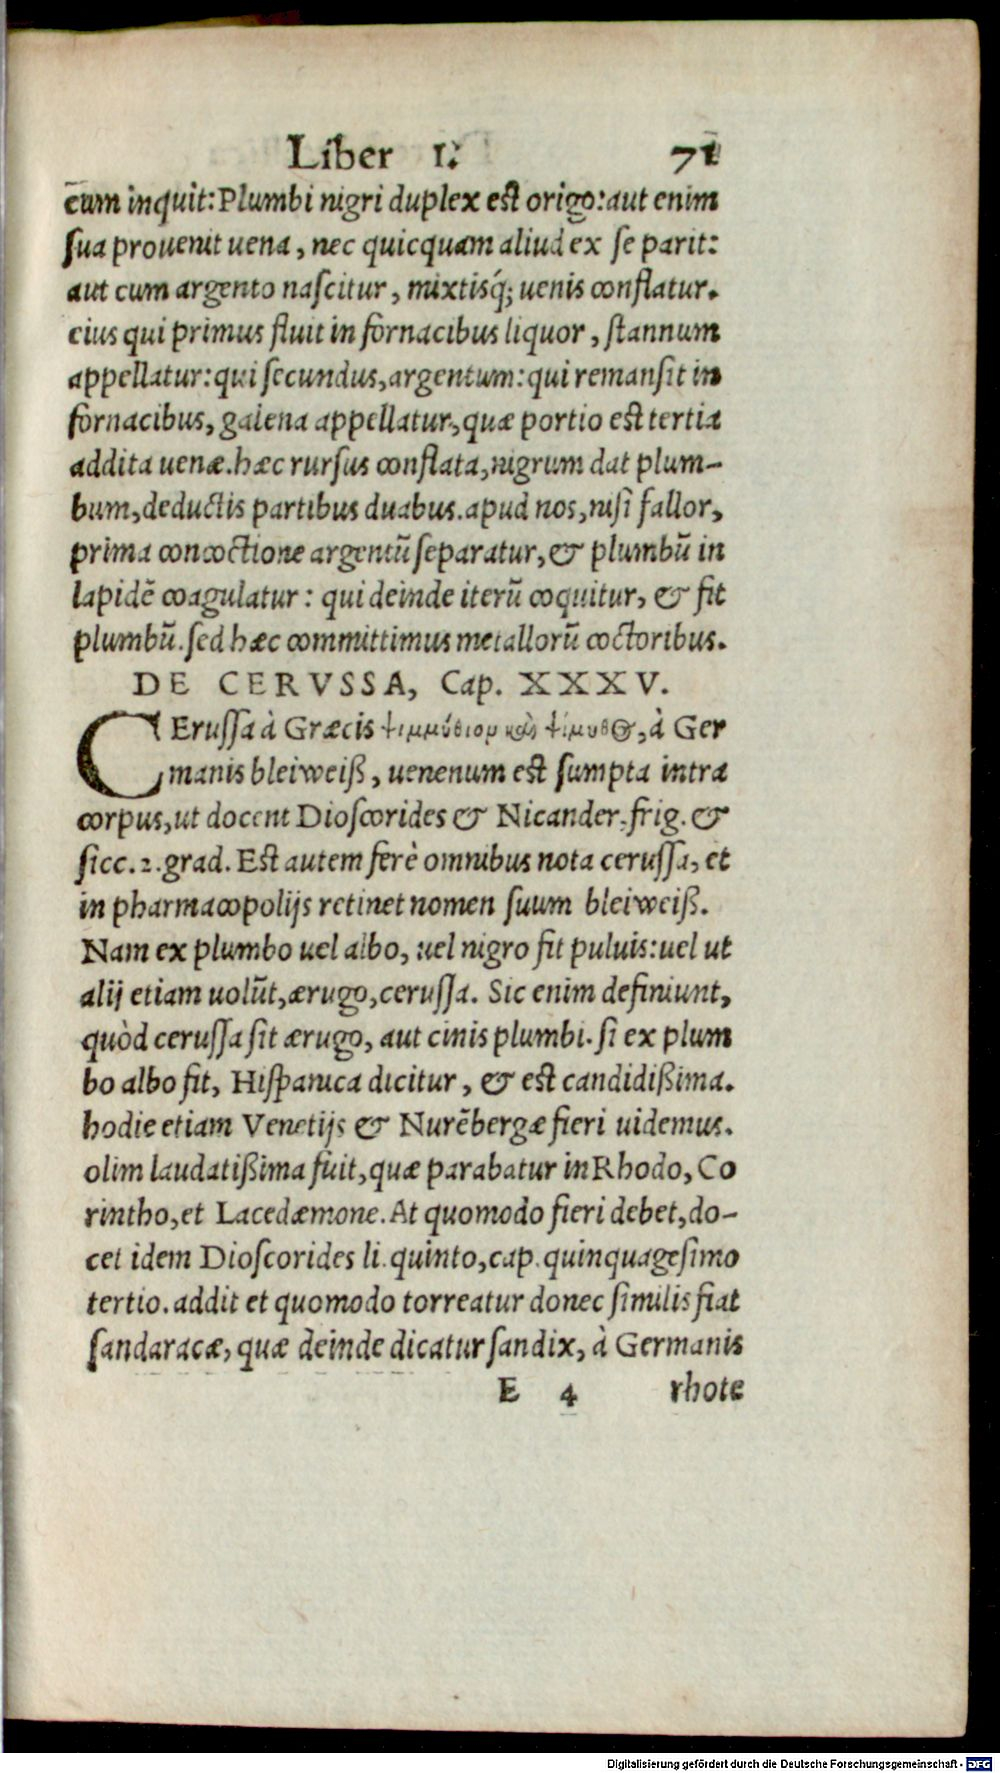 Liber I. 71
cum inquit: Plumbi nigri duplex est origo: aut enim
sua prouenit uena, nec quicquam aliud ex se parit:
aut cum argento nascitur, mixtisq́; uenis conflatur.
eius qui primus fluit in fornacibus liquor, stannum
appellatur: qui secundus, argentum: qui remansit in
fornacibus, galena appellatur, quæ portio est tertia
addita uenæ. hæc rursus conflata, nigrum dat plum-
bum, deductis partibus duabus. apud nos, nisi fallor,
prima concoctione argentū separatur, & plumbū in
lapidē coagulatur: qui deinde iterū coquitur, & fit
plumbū. sed hæc committimus metallorū coctoribus.
DE CERVSSA, Cap. XXXV.
CErussa à Græcis ψιμμύθιον καὶ ψίμυθος, à Ger
manis bleiweiß, uenenum est sumpta intra
corpus, ut docent Dioscorides & Nicander. frig. &
sicc. 2. grad. Est autem ferè omnibus nota cerussa, et
in pharmacopolijs retinet nomen suum bleiweiß.
Nam ex plumbo uel albo, uel nigro fit puluis: uel ut
alij etiam uolūt, ærugo, cerussa. Sic enim definiunt,
quòd cerussa sit ærugo, aut cinis plumbi. si ex plum
bo albo fit, Hispanica dicitur, & est candidißima.
hodie etiam Venetijs & Nurēbergæ fieri uidemus.
olim laudatißima fuit, quæ parabatur in Rhodo, Co
rintho, et Lacedæmone. At quomodo fieri debet, do-
cet idem Dioscorides li. quinto, cap. quinquagesimo
tertio. addit et quomodo torreatur donec similis fiat
sandaracæ, quæ deinde dicatur sandix, à Germanis
E 4 rhote
Digitalisierung gefördert durch die Deutsche Forschungsgemeinschaft - DFG